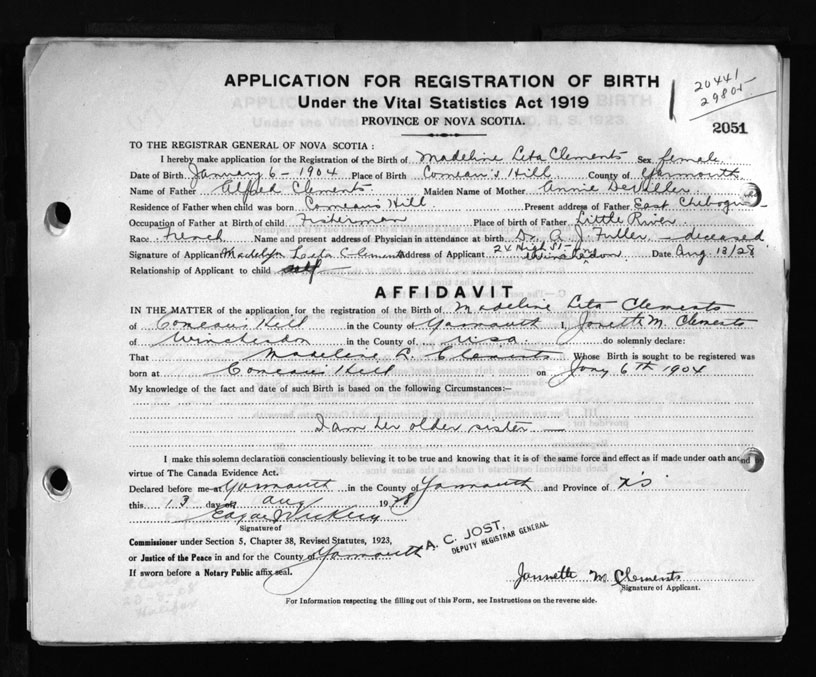 APPLICATION FOR REGISTRATION OF BIRTH
Under the Vital Statistics Act 1919
PROVINCE OF NOVA SCOTIA.
20441
29805
2051
TO THE REGISTRAR GENERAL OF NOVA SCOTIA :
I hereby make application for the Registration of the Birth of Madeline Leta Clements Sex female
Date of Birth January 6 - 1904 Place of Birth Comeau's Hill County of Yarmouth
Name of Father Alfred Clements Maiden Name of Mother Annie
Residence of Father when child was born Comeau's Hill Present address of Father East Chebogue
Occupation of Father at Birth of child Fisherman Place of birth of Father Little River
Race French Name and present address of Physician in attendance at birth Dr. A. J. Fuller - deceased
Signature of Applicant Madelyn Leta Clements Address of Applicant 24 High St - Date Aug 13/28
Relationship of Applicant to child self
AFFIDAVIT
IN THE MATTER of the application for the registration of the Birth of Madeline Leta Clements
of Comeau's Hill in the County of Yarmouth I, Janette M. Clements
of in the County of, U.S.A. do solemnly declare:
That Madeline L. Clements Whose Birth is sought to be registered was
born at Comeau's Hill on Jany 6th 1904
My knowledge of the fact and date of such Birth is based on the following Circumstances:—
I am her older sister —
I make this solemn declaration conscientiously believing it to be true and knowing that it is of the same force and effect as if made under oath and
virtue of The Canada Evidence Act.
Declared before me at Yarmouth in the County of Yarmouth and Province of N.S.
this 13 day of Aug 1928
Edgar
Signature of
Commissioner under Section 5, Chapter 38, Revised Statutes, 1923,
or Justice of the Peace in and for the County of Yarmouth
A. C. JOST,
DEPUTY REGISTRAR GENERAL
If sworn before a Notary Public affix seal.
Jannette M. Clements
Signature of Applicant.
For Information respecting the filling out of this Form, see Instructions on the reverse side.